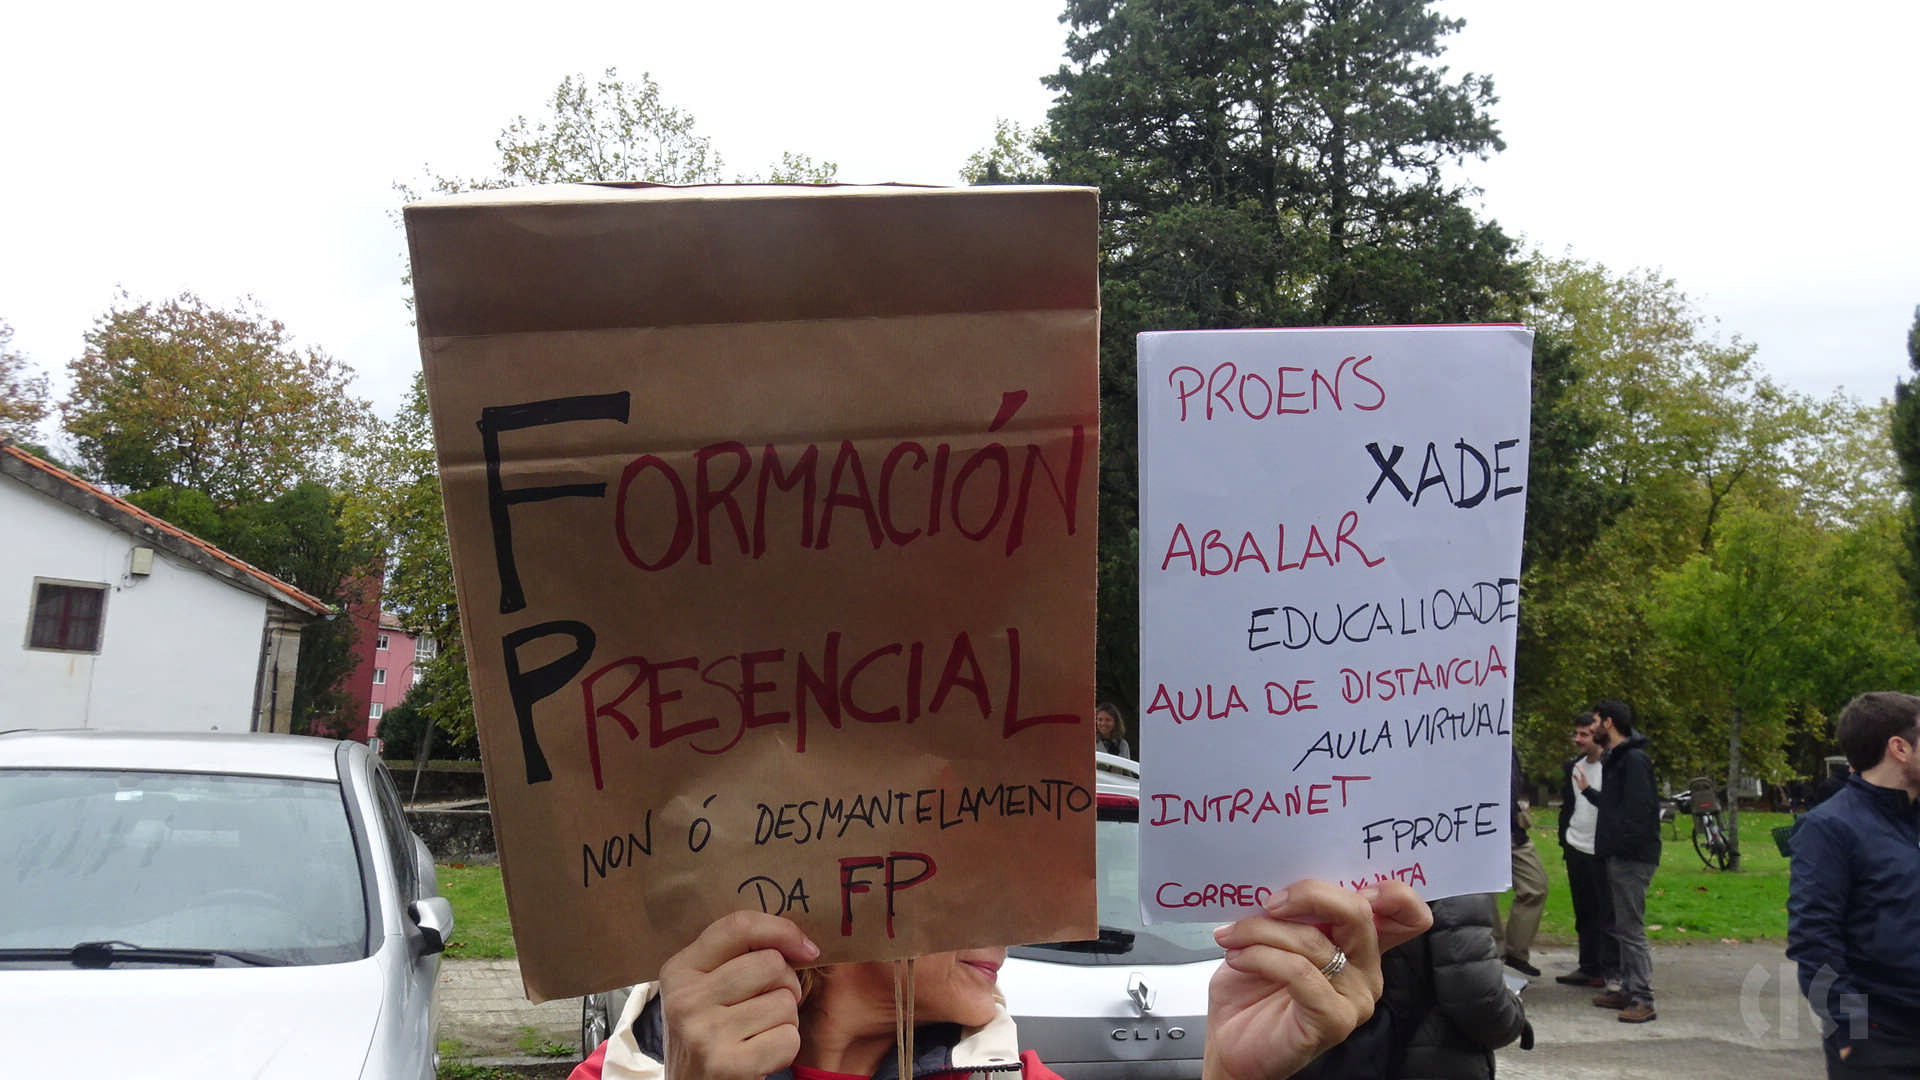 FORMACIÓN
PRESENCIAL
NON Ó DESMANTELAMENTO
DA FP
PROENS
XADE
ABALAR
EDUCALIDADE
AULA DE DISTANCIA
AULA VIRTUAL
INTRANET
FPROFE
CORREO XUNTA
CLIO
CIG